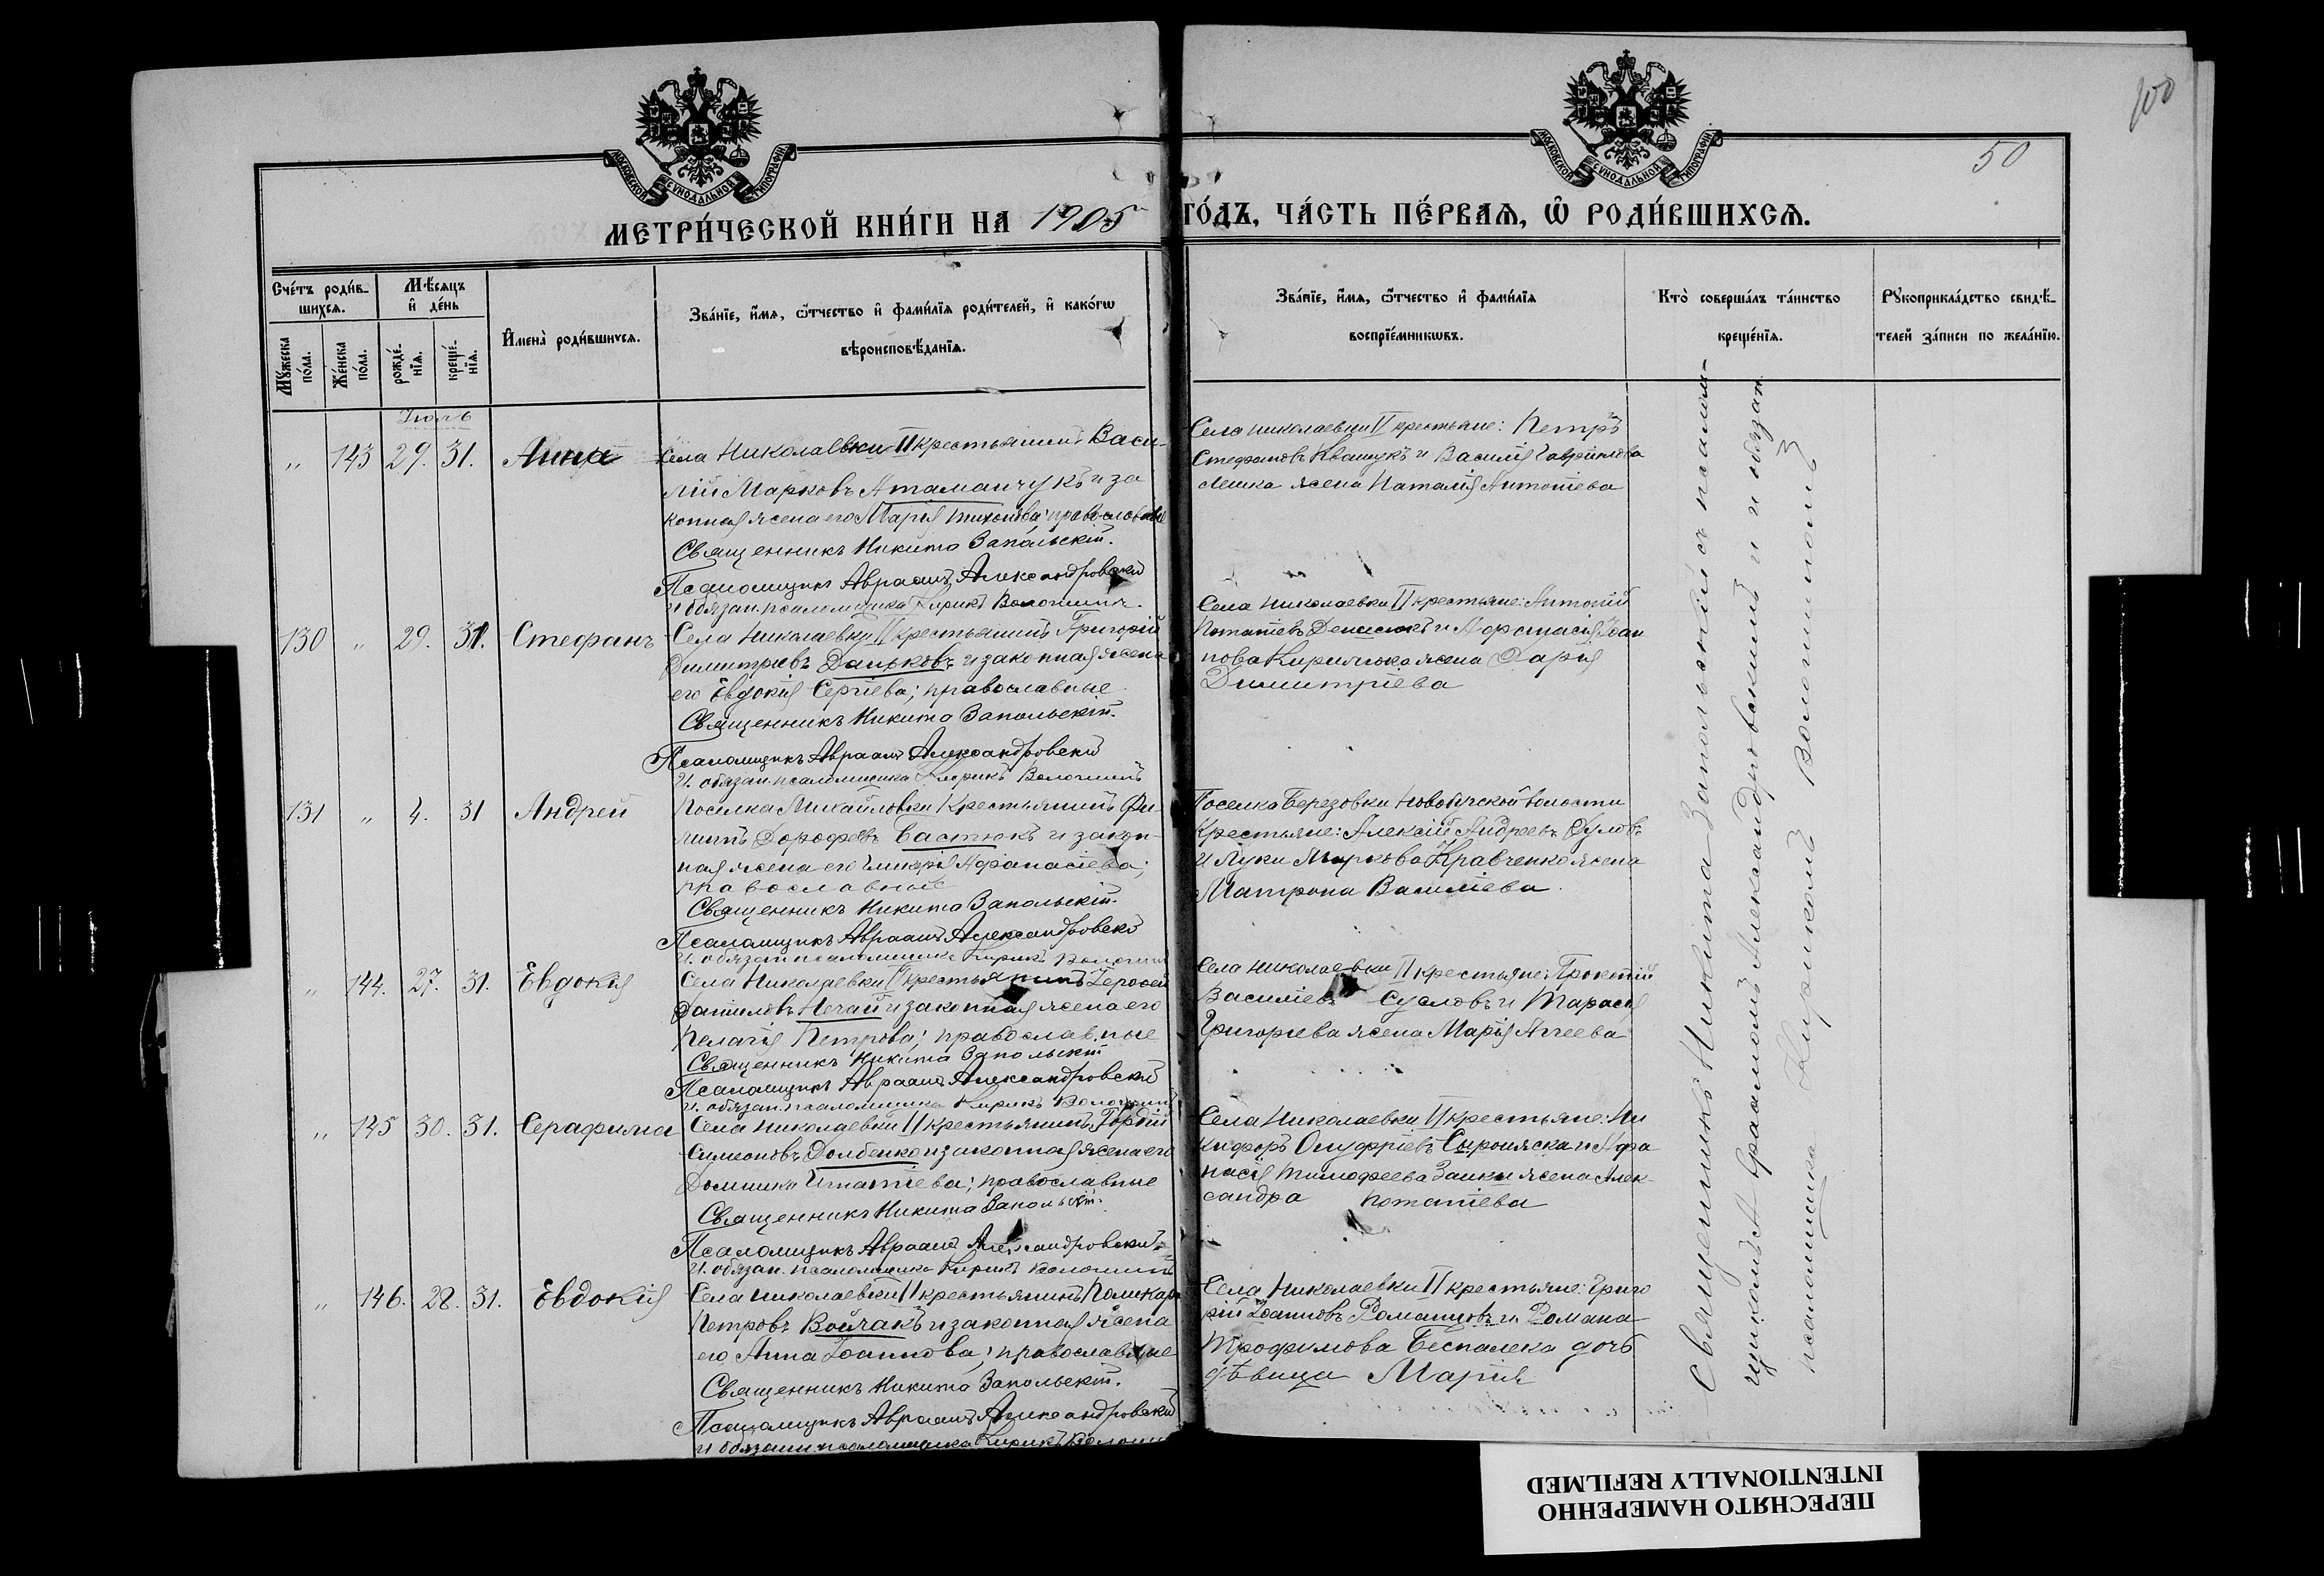 100
50
МОСКОВСКОЙ СѴНОДАЛЬНОЙ ТИПОГРАФІИ
МОСКОВСКОЙ СѴНОДАЛЬНОЙ ТИПОГРАФІИ
МЕТРИ́ЧЕСКОЙ КНИ́ГИ НА 1905
ГО́ДЪ, ЧА́СТЬ ПЕ́РВАѦ, Ѽ РОДИ́ВШИХСѦ.
Счéтъ роди́в-
шихсѧ.
Мѹ́жеска по́ла.
Же́нска по́ла.
Мѣ́сѧцъ
и҆ де́нь
рожде́-
нїѧ.
креще́-
нїѧ.
И҆менà роди́вшихсѧ.
Зва́нїе, и҆́мѧ, ѻ҆́тчество и҆ фами́лїѧ роди́телей, и҆ како́гѡ
вѣроисповѣ́данїѧ.
Зва́нїе, и҆́мѧ, ѻ҆́тчество и҆ фами́лїѧ
воспрїе́мникѡвъ.
Кто̀ соверша́лъ та́инство
креще́нїѧ.
Рѹкоприкла́дство свидѣ́-
телей за́писи по жела́нїю.
Іюль
„ 143 29. 31. Анна
Села Николаевки II крестьянинъ Васи-
лій Марковъ Атаманчукъ и за
конная жена его Марія Тихонова; православные
Священникъ Никита Запольскій.
Псаломщикъ Авраамъ Александровскій
И обязан. псаломщика Кирикъ Волошинъ.
Села Николаевки II крестьяне: Петръ
Стефановъ Квашукъ и Василія Гаврилова
жена Наталія Антонiева
130 „ 29. 31. Стефанъ
Села Николаевки II крестьянинъ Григорій
Димитріевъ Даньковъ и законная жена
его Евдокія Сергіева; православные
Священникъ Никита Запольскій.
Псаломщикъ Авраамъ Александровскій
И. обязан. псаломщика Кирикъ Волошинъ
Села Николаевки II крестьяне: Антоній
Потапіевъ Денисюкъ и Афанасія Іоан
нова Кирилюка жена Дарія
Димитріева
131 „ 4. 31 Андрей
Поселка Михайловки Крестьянинъ Фи-
липпъ Дорофеевъ Састюкъ и закон-
ная жена его Гликерія Афанасіева;
православные
Священникъ Никита Запольскій.
Псаломщикъ Авраамъ Александровскій
И. обязан псаломщика Кирикъ Волошинъ
Поселка Березовки волости
Крестьяне: Алексій Андреевъ Дуловъ
и Луки Маркова Кравченко жена
Матрона Василіева.
„ 144. 27. 31. Евдокія
Села Николаевки II крестьянинъ Іеро­ѳей
Даниловъ Нечай и законная жена его
Пелагія Петрова; православные
Священникъ Никита Запольскій
Псаломщикъ Авраамъ Александровскій
И. обязан. псаломщика Кирикъ Волошинъ
Села Николаевки II крестьяне: Прокопій
Василіевъ Сусловъ и Тарасія
Григорьева жена Марія Аггеева
„ 145 30. 31. Серафима
Села Николаевки II крестьянинъ Гордій
Симеоновъ Долбенко и законная жена его
Домника Игнатіева; православные
Священникъ Никита Запольскій.
Псаломщикъ Авраамъ Александровскій
И. обязан. псаломщика Кирикъ Волошинъ
Села Николаевки II крестьяне: Ни
кифоръ Онуфріевъ Сыроижска и Афа
насія Тимофеева Заики жена Алек-
сандра Потапіева
„ 146. 28. 31. Евдокія
Села Николаевки II крестьянинъ Поликарпъ
Петровъ Войчакъ и законная жена
его Анна Іоаннова; православные
Священникъ Никита Запольскій.
Псаломщикъ Авраамъ Александровскій
И обязан псаломщика Кирикъ Волошинъ
Села Николаевки II крестьяне: Григо
рій Іоанновъ Романцовъ и Романа
Трофимова Беспалека дочь
дѣвица Марія
Священникъ Никита Запольскій съ псалом-
щикомъ Авраамомъ Александровскимъ и и обязан
псаломщика Кирикомъ Волошинномъ
ПЕРЕСНЯТО НАМЕРЕННО
INTENTIONALLY REFILMED